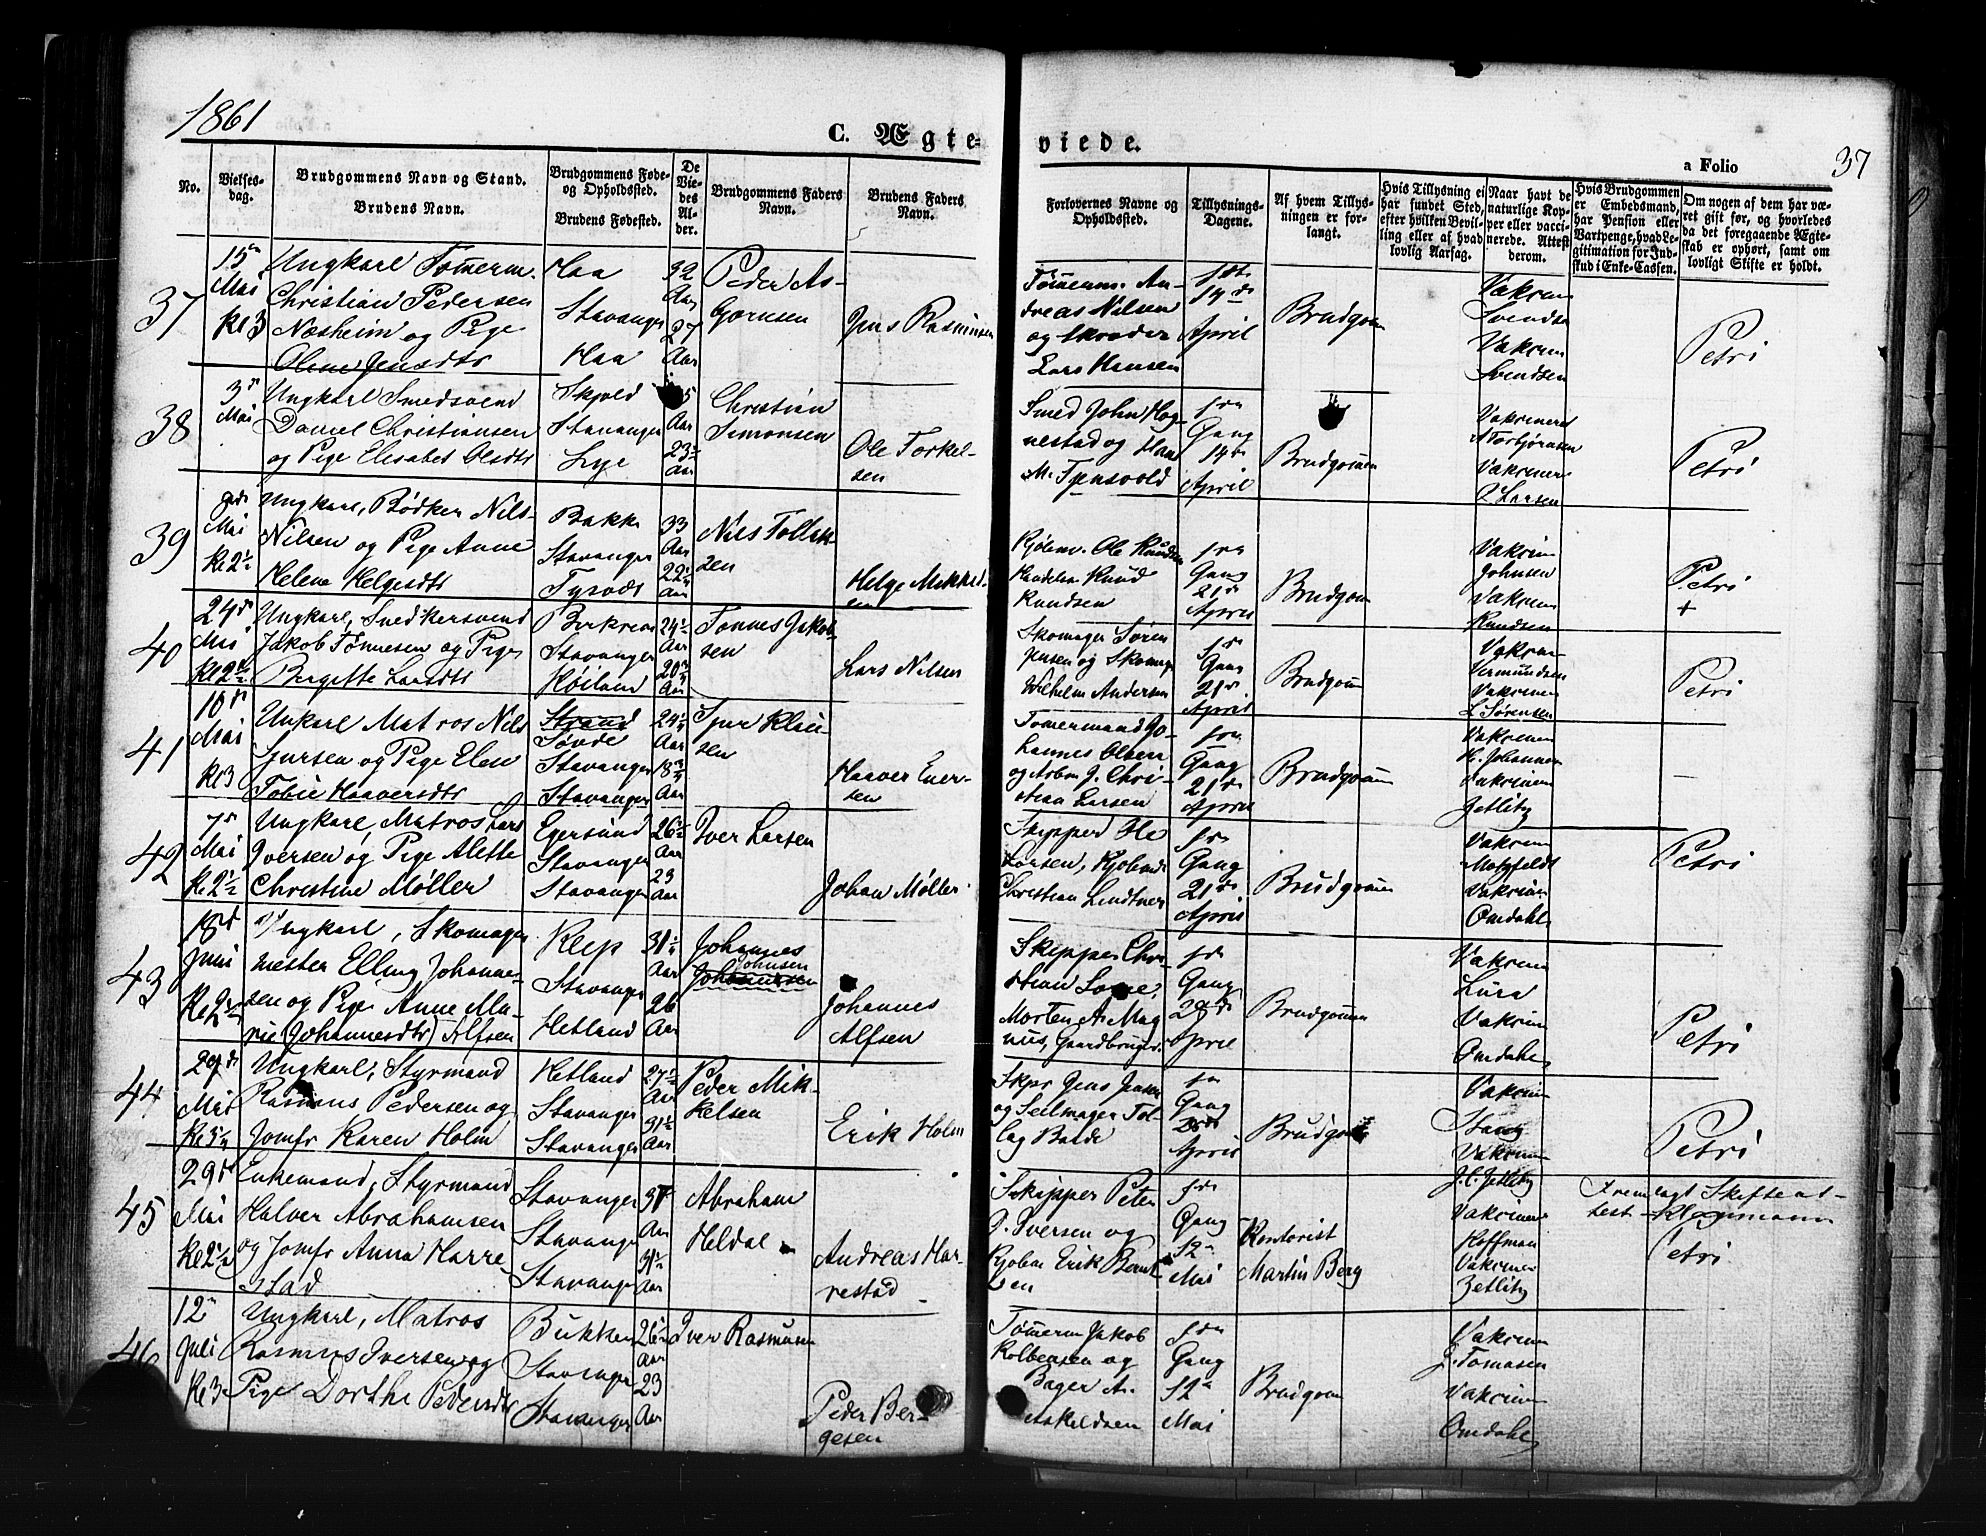 1861
C. Ægteviede.
a Folio 37
No.
Vielses-
dag.
Brudgommens Navn og Stand.
Brudens Navn.
Brudgommens Føde-
og Opholdssted.
Brudens Fødested.
De
Vie-
des
Al-
der.
Brudgommens Faders
Navn.
Brudens Faders
Navn.
Forlovernes Navne og
Opholdssted.
Tillysnings-
Dagene.
Af hvem Tillys-
ningen er for-
langt.
Hvis Tillysning ei
har fundet Sted,
efter hvilken Bevil-
ling eller af hvad
lovlig Aarsag.
Naar havt de
naturlige Kop-
per eller vacci-
nerede. Attest
derom.
Hvis Brudgommen
er Embedsmand,
har Pension eller
Vartpenge, hvad Le-
gitimation for Ind-
skud i Enke-Cassen.
Om nogen af dem har væ-
ret gift før, og hvorledes
da det foregaaende Ægte-
skab er ophørt, samt om
lovligt Skifte er holdt.
37
15de
Mai
Kl 3
Ungkarl Tømerm.
Christian Pedersen
Næsheim og Pige
Olene Jensdtr
Haa
Stavanger
Haa
32
Aar
27
Aar
Peder As-
Gornsen
Jens Rasmusen
Tømerm. An-
dreas Nilsen
og Skreder
Lars Hansen
14de
April
Brudgom
Vakcin
Svendsen
Vakcin
Svendsen
Petri
38
3de
Mai
Ungkarl Smedsvend
Daniel Christiansen
og Pige Elisabet Olsdtr
Skjold
Stavanger
Lye
Aar
23
Aar
Christian
Simonsen
Ole Torkel-
sen
Smed John Hog-
nestad og Han
M. Tjensvold
1ste
Gang
14de
April
Brudgommen
Vakcineret
A Torbjørnsen
Vakciner
P Larsen
Petri
39
Mai
Kl 2½
Ungkarl, Bødker Nils
Nilsen og Pige Anne
Helene Helgesdtr
Bakke
Stavanger
Tysvær
33
Aar
22½
Aar
Nils Tollek-
sen
Helge Mikkel-
sen
Kjøbm. Ole Knudsen
Handelsm Knud
Knudsen
1ste
Gang
21de
April
Brudgom
Vakcin
Johnsen
Vakcin
Knudsen
Petri
+
40
24de
Mai
Kl 2½
Ungkarl, Snedkersvend
Jakob Tønnesen og Pige
Bergitte Larsdtr
Birkrem
Stavanger
Høiland
24½
Aar
20¾
Aar
Tønnes Jakob-
sen
Lars Nilsen
Skomager Søren
Jensen og Skomag
Wilhelm Andersen
1ste
Gang
21de
April
Brudgom
Vakcin
Vermundsen
Vakciner
L Sørensen
Petri
41
10de
Mai
Kl 3
Unkarl Matros Nils
Sjursen og Pige Elen
Tobie Haaversdtr
Strand
Søvde
Stavanger
Stavanger
24½
Aar
18¾
Aar
Sjur Klau-
sen
Haaver Ener-
sen
Tømermand Jo-
hannes Olsen
og Arbm J. Chri-
stian Larsen
1ste
Gang
21de
April
Brudgom
Vakcinen
H. Johannesen
Vakcinen
Zetlitz
—
42
7de
Mai
Kl 2½
Ungkarl, Matros Lars
Iversen og Pige Alette
Christine Møller
Egersund
Stavanger
Stavanger
26½
Aar
23
Aar
Iver Larsen
Johan Møller
Skipper Ole
Larsen, Kjøbmd
Christian Lindtner
1ste
Gang
21de
April
Brudgom
Vakcin
Motzfeldt
Vakcin
Omdahl
Petri
43
18de
Juni
Kl 2½
Ungkarl, Skomager
mester Elling Johanne-
sen og Pige Anne Ma-
rie (Johannesdtr) Alfsen
Klep
Stavanger
Hetland
31½
Aar
26
Aar
Johannes
Johnsen
Johannes
Alfsen
Skipper Chri-
stian
Morten A. Mag-
nus, Gaardbruger
1ste
Gang
28de
April
Brudgommen
Vakcin
Lura
Vakcin
Omdahl
Petri
44
29de
Mai
Ungkarl, Styrmand
Rasmus Pedersen og
Jomfr Karen Holm
Hetland
Stavanger
Stavanger
27½
Aar
31½
Aar
Peder Mik-
kelsen
Erik Holm
Skpr Jens Jensen
og Seilmager Tol-
lag Balde
1ste
Gang
28de
April
Brudgom
Vakcin
Stang
Vakcin
J.C. Zetlitz
Petri
45
29de
Mai
Kl 2½
Enkemand, Styrmand
Halver Abrahamsen
og Jomfr Anna Harre-
stad
Stavanger
Stavanger
Stavanger
Aar
31½
Aar
Abraham
Heldal
Andreas Har-
restad
Skipper Peter
J. Iversen og
Kjøbm Erik Bernt-
sen
1ste
Gang
12te
Mai
Kontorist
Martin Berg
Vakcinen
Hoffman
Vakcinen
Zetlitz
Fremlagt Skifteat-
test
Petri
46
12te
Juli
Kl 3
Ungkarl, Matros
Rasmus Iversen og
Pige Dorthe Pedersdtr
Bukken
Stavanger
Stavanger
26½
Aar
23
Aar
Iver Rasmusen
Peder Ber-
gesen
Tømerm Jakob
Kolbensen og
Bager A.
Askildsen
1ste
Gang
12te
Mai
Brudgom
Vakcin
J. Tomasen
Vakcin
Omdahl